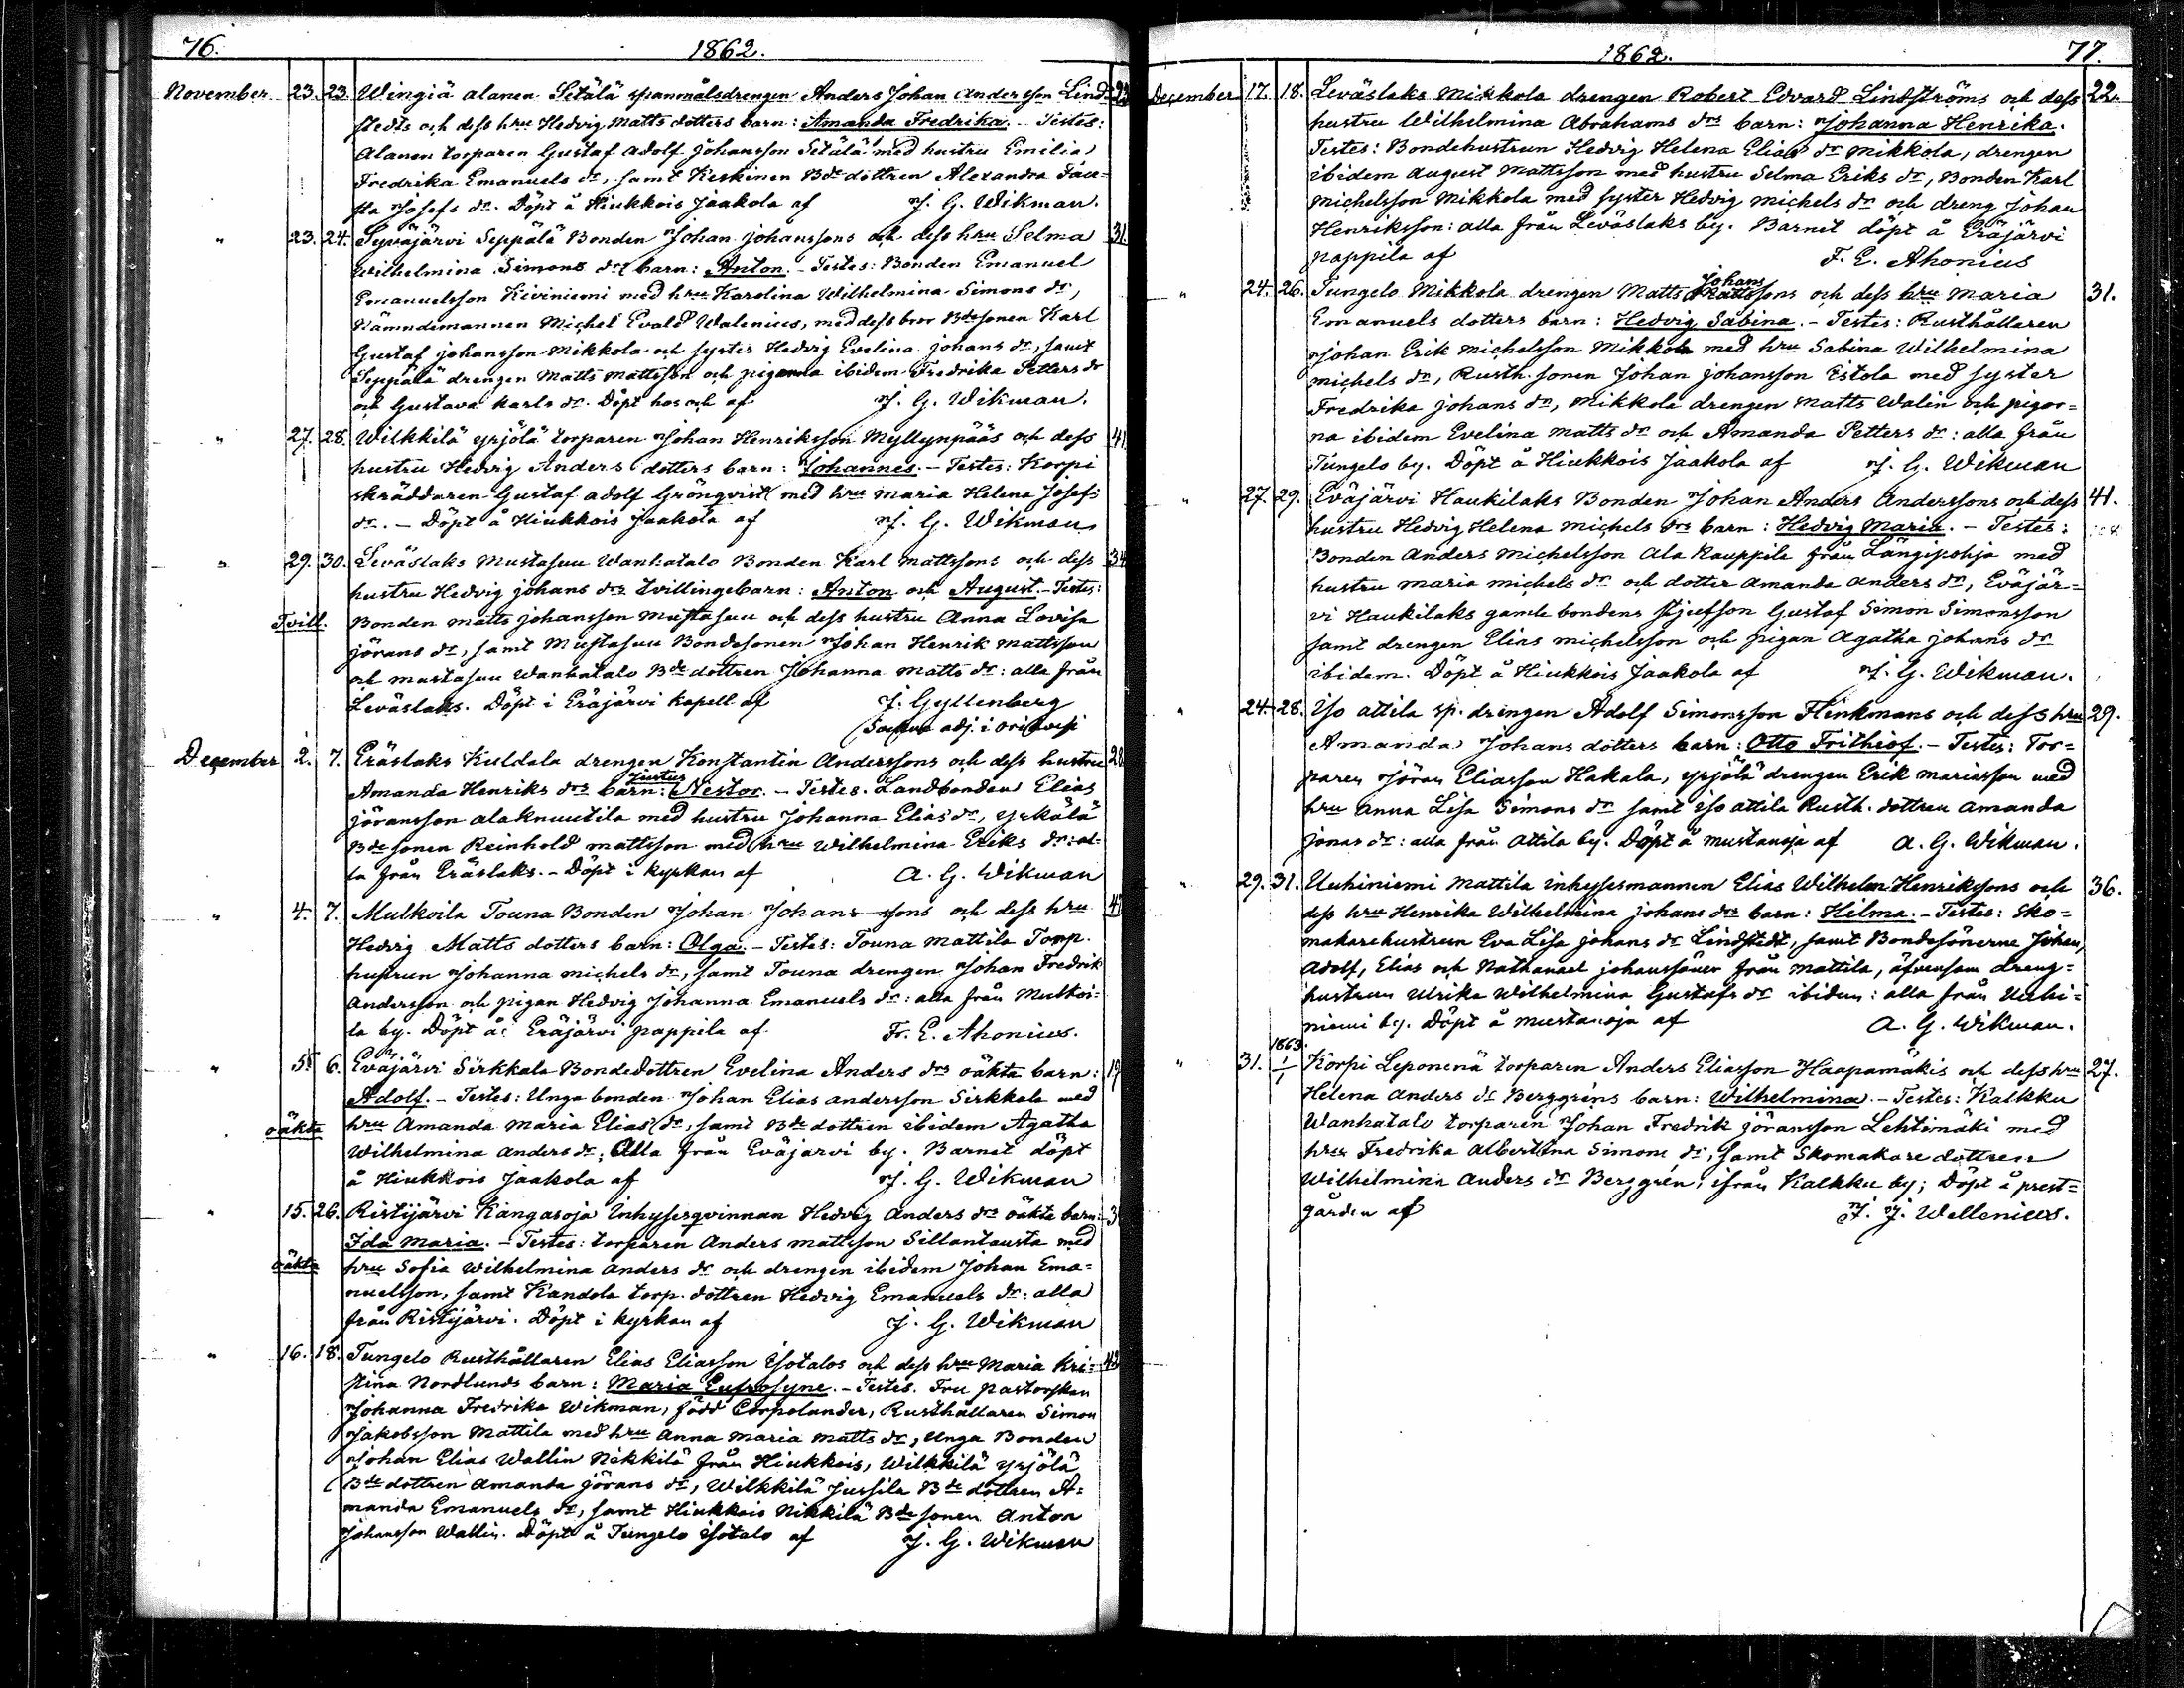 76. 1862.
November 23. 23. Wingiä alanen Setälä spanmålsdrengen Anders Johan Andersson Lind 23
stedts och dess hru Hedvig Matts dotters barn: Amanda Fredrika. - Testes:
Alanen torparen Gustaf Adolf Johansson Setälä med hustru Emilia
Fredrika Emanuels dr, samt Keskinen Bde dottren Alexandra Fau=
sta Josefs dr. Döpt å Hiukkois Jaakola af J. G. Wikman.
" 23. 24. Sypäjärvi Seppälä Bonden Johan Johanssons och dess hru Selma 31.
Wilhelmina Simons drs barn: Anton. - Testes: Bonden Emanuel
Emanuelsson Kiviniemi med hru Karolina Wilhelmina Simons dr,
Nämndemannen Michel Evald Walenius, med dess bror Bdesonen Karl
Gustaf Johansson Mikkola och syster Hedvig Evelina Johans dr, samt
Seppälä drengen Matts Mattsson och pigorna ibidem Fredrika Petters dr
och Gustava Karls dr. Döpt hos och af J. G. Wikman.
" 27. 28. Wilkkilä Yrjölä torparen Johan Henriksson Myllynpääs och dess 41
hustru Hedvig Anders dotters barn: Johannes. - Testes: Korpi
skräddaren Gustaf Adolf Grönqvist med hru Maria Helena Josefs
dr. - Döpt å Hiukkois Jaakola af J. G. Wikman
" 29. 30. Leväslaks Mustasuu Wanhatalo Bonden Karl Mattssons och dess 34
hustru Hedvig Johans drs tvillingebarn: Anton och August. - Testes:
Tvill. Bonden Matts Johansson Mustasuu och dess hustru Anna Lovisa
Jörans dr, samt Mustasuu Bondesonen Johan Henrik Mattsson
och Mustasuu Wanhatalo Bde dottren Johanna Matts dr: alla från
Leväslaks. Döpt i Eräjärvi kapell af J. Gyllenberg
adj. i Orivesi
December 2. 7. Eräslaks Kuldala drengen Konstantin Anderssons och dess hustru 28
Justus
Amanda Henriks drs barn: Nestor. - Testes. Landbonden Elias
Jöransson Alaknuutila med hustru Johanna Elias dr, Yrkälä
Bde sonen Reinhold Mattsson med hru Wilhelmina Eriks dr: al=
la från Eräslaks. - Döpt i kyrkan af A. G. Wikman
" 4. 7. Mulkoila Touna Bonden Johan Johans sons och dess hru 47
Hedvig Matts dotters barn: Olga. - Testes: Touna Mattila Torp.
hustrun Johanna Michels dr, samt Touna drengen Johan Fredrik
Andersson och pigan Hedvig Johanna Emanuels dr: alla från Mulkoi=
la by. Döpt å Eräjärvi pappila af Fr. E. Ahonius.
" 5. 6. Eväjärvi Sirkkala Bondedottren Evelina Anders drs oäkta barn: 19
Adolf. - Testes: Unga bonden Johan Elias Andersson Sirkkala med
oäkta hru Amanda Maria Elias dr, samt Bde dottren ibidem Agatha
Wilhelmina Anders dr: Alla från Eväjärvi by. Barnet döpt
å Hiukkois Jaakola af J. G. Wikman
" 15. 26. Ristijärvi Kangasoja Inhysesqvinnan Hedvig Anders drs oäkta barn: 3
Ida Maria. - Testes: torparen Anders Mattsson Sillantausta med
oäkta hru Sofia Wilhelmina Anders dr och drengen ibidem Johan Ema=
nuelsson, samt Kandola torp. dottren Hedvig Emanuels dr: alla
från Ristijärvi. Döpt i kyrkan af J. G. Wikman
" 16. 18. Tungelo Rusthållaren Elias Eliasson Isotalos och dess hru Maria Kri= 43
stina Nordlunds barn: Maria Eufrosyne. - Testes. Fru pastorskan
Johanna Fredrika Wikman, född Corpolander, Rusthållaren Simon
Jakobsson Mattila med hru Anna Maria Matts dr, Unga Bonden
Johan Elias Wallin Nikkilä från Hiukkois, Wilkkilä Yrjölä
Bde dottren Amanda Jörans dr, Wilkkilä Jussila Bde dottren A=
manda Emanuels dr, samt Hiukkois Nikkilä Bde sonen Anton
Johansson Wallin. Döpt å Tungelo Isotalo af J. G. Wikman
1862. 77.
December 17. 18. Leväslaks Mikkola drengen Robert Edvard Lindströms och dess 22.
hustru Wilhelmina Abrahams drs barn: Johanna Henrika.
Testes: Bondehustrun Hedvig Helena Elias dr Mikkola, drengen
ibidem August Mattsson med hustru Selma Eriks dr, Bonden Karl
Michelsson Mikkola med syster Hedvig Michels dr och dreng Johan
Henriksson: alla från Leväslaks by. Barnet döpt å Eräjärvi
pappila af F. E. Ahonius
Johans
" 24. 26. Tungelo Mikkola drengen Matts Mattssons och dess hru Maria 31.
Emanuels dotters barn: Hedvig Sabina. - Testes: Rusthållaren
Johan Erik Michelsson Mikkola med hru Sabina Wilhelmina
Michels dr, Rusth. sonen Johan Johansson Estola med syster
Fredrika Johans dr, Mikkola drengen Matts Walin och pigor=
na ibidem Evelina Matts dr och Amanda Petters dr: alla från
Tungelo by. Döpt å Hiukkois Jaakola af J. G. Wikman
" 27. 29. Eväjärvi Haukilaks Bonden Johan Anders Anderssons och dess 41.
hustru Hedvig Helena Michels drs barn: Hedvig Maria. - Testes:
Bonden Anders Michelsson Ala Kauppila från Längipohja med
hustru Maria Michels dr och dotter Amanda Anders dr, Eväjär=
vi Haukilaks gamla bondens stjufson Gustaf Simon Simonsson
samt drengen Elias Michelsson och pigan Agatha Johans dr
ibidem. Döpt å Hiukkois Jaakola af J. G. Wikman.
" 24. 28. Iso Attila sp. drengen Adolf Simonsson Flinkmans och dess hru 29.
Amanda Johans dotters barn: Otto Frithiof. - Testes: Tor=
paren Jöran Eliasson Hakala, Yrjölä drengen Erik Mariasson med
hru Anna Lisa Simons dr samt Iso Attila Rusth. dottren Amanda
Jonas dr: alla från Attila by. Döpt å Mustanoja af A. G. Wikman.
" 29. 31. Uuhiniemi Mattila inhysesmannen Elias Wilhelm Henrikssons och 36.
dess hru Henrika Wilhelmina Johans drs barn: Hilma. - Testes: Sko=
makarehustrun Eva Lisa Johans dr Lindstedt, samt Bondesönerne Johan,
Adolf, Elias och Nathanael Johanssöner från Mattila, äfvensom dreng=
hustrun Ulrika Wilhelmina Gustafs dr ibidem: alla från Uuhi=
niemi by. Döpt å Mustanoja af A. G. Wikman.
1863.
" 31. 1/1 Korpi Leponenä torparen Anders Eliasson Haapamäkis och dess hru 27.
Helena Anders dr Berggréns barn: Wilhelmina. - Testes: Kalkku
Wanhatalo torparen Johan Fredrik Jöransson Lehtimäki med
hru Fredrika Albertina Simons dr, samt Skomakare dottren
Wilhelmina Anders dr Berggrén, ifrån Kalkku by; Döpt å prest=
gården af J. J. Wellenius.